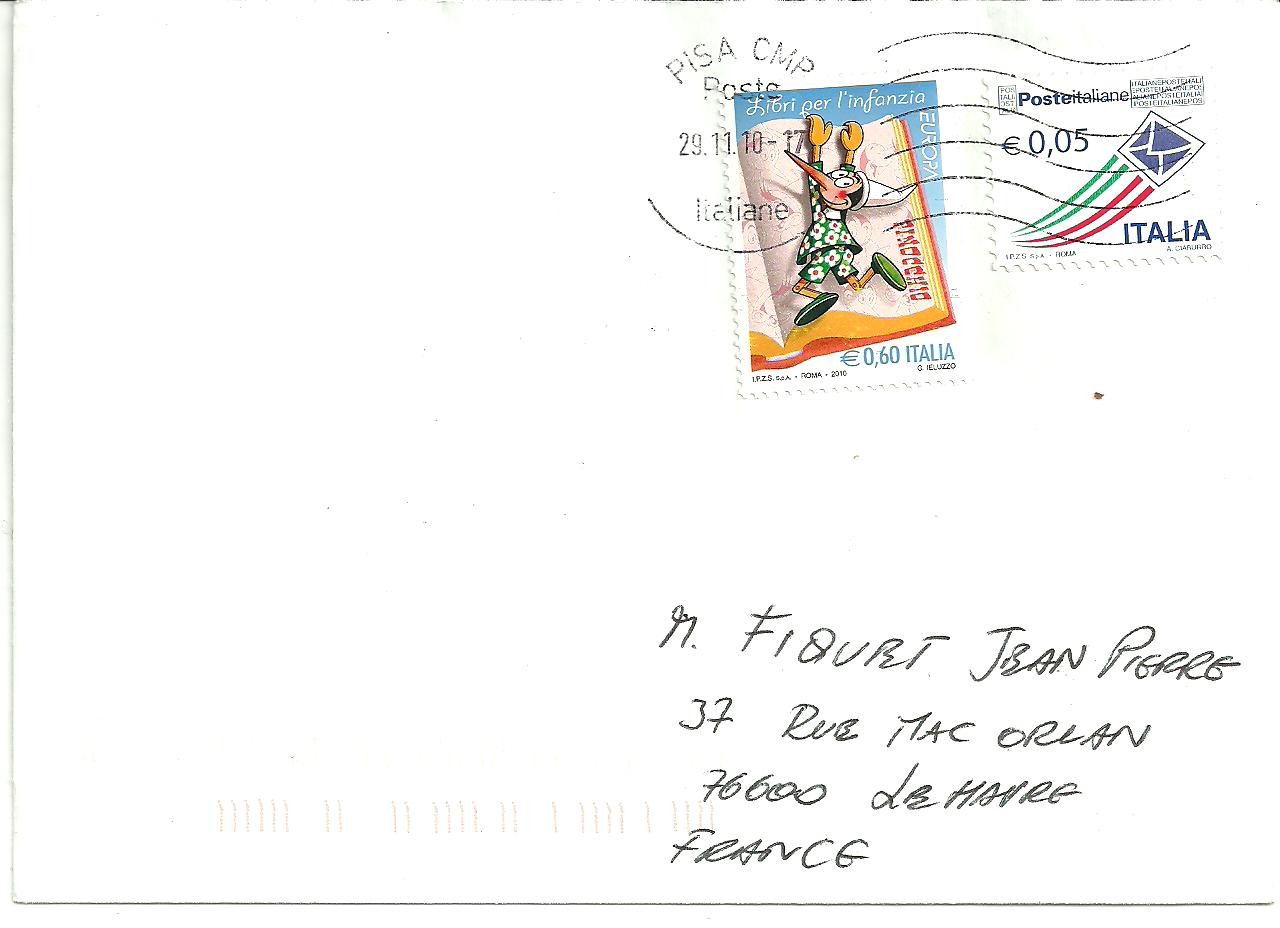 PISA CMP
Poste
29.11.10-17
Italiane
Libri per l'infanzia
EUROPA
PINOCCHIO
€ 0,60 ITALIA
I.P.Z.S. S.p.A. • ROMA • 2010
G. IELUZZO
Posteitaliane
€ 0,05
ITALIA
A. CIABURRO
I.P.Z.S. S.p.A. • ROMA
M. FIQUET JEAN PIERRE
37 RUE MAC ORLAN
76600 LE HAVRE
FRANCE